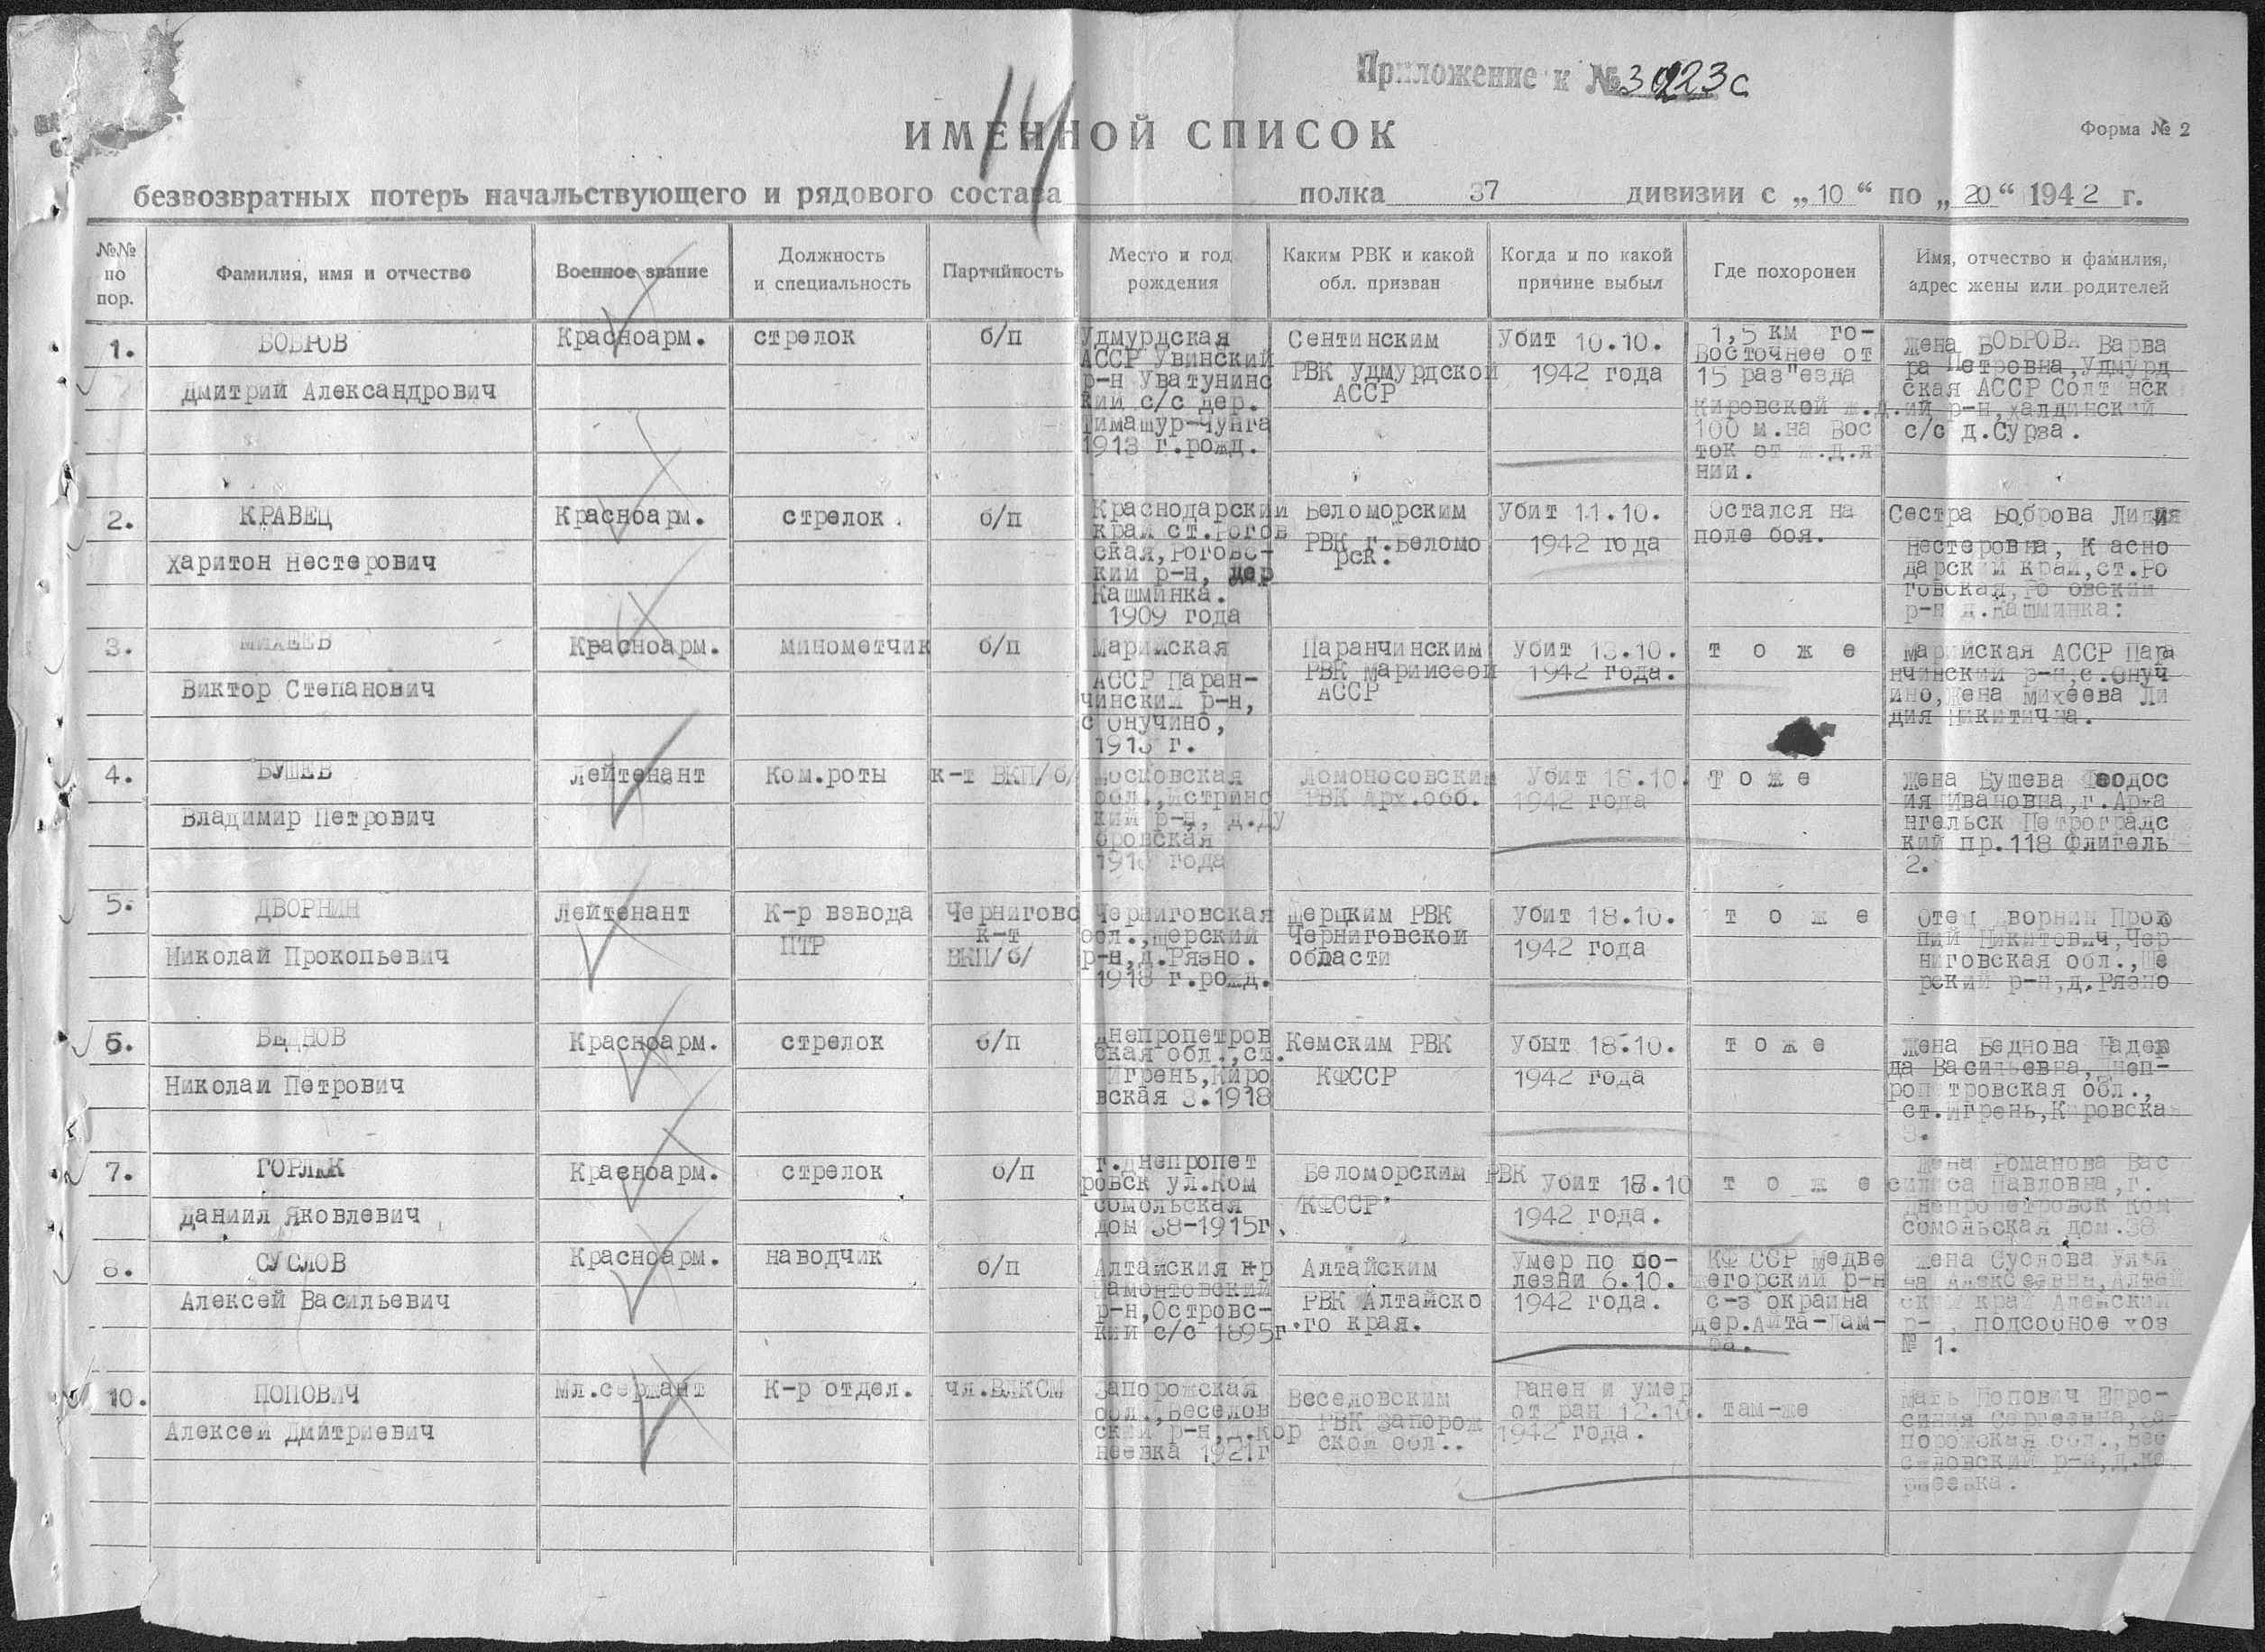 Приложение к № 3023с
14
ИМЕННОЙ СПИСОК
Форма № 2
безвозвратных потерь начальствующего и рядового состава полка 37 дивизии с „10“ по „20“ 1942 г.
№№ по пор.
Фамилия, имя и отчество
Военное звание
Должность и специальность
Партийность
Место и год рождения
Каким РВК и какой обл. призван
Когда и по какой причине выбыл
Где похоронен
Имя, отчество и фамилия, адрес жены или родителей
1.
БОБРОВ
Дмитрий Александрович
Красноарм.
стрелок
б/п
Удмурдская
АССР Увинский
р-н Уватунинс
кий с/с дер.
Тимашур-Чунга
1913 г.рожд.
Сентинским
РВК Удмурдской
АССР
Убит 10.10.
1942 года
1,5 км го-
Восточнее от
15 раз"езда
Кировской ж.д.
100 м.на Вос
ток от ж.д.л
нии.
жена БОБРОВА Варва
ра Петровна,Удмурд
ская АССР Солт нск
ий р-н,халдинский
с/с д.Сурва.
2.
КРАВЕЦ
Харитон Нестерович
Красноарм.
стрелок.
б/п
Краснодарский
край ст.Рогов
ская,Роговс-
кий р-н, дер
Кашминка.
1909 года
Беломорским
РВК г.Беломо
рск.
Убит 11.10.
1942 года
Остался на
поле боя.
Сестра Боброва Лидия
Нестеровна, К асно
дарский край,ст.Ро
говская,Ро овский
р-н д.Кашминка:
3.
МИХЕЕВ
Виктор Степанович
Красноарм.
минометчик
б/п
Марийская
АССР Паран-
чинский р-н,
с Онучино,
г.
Паранчинским
РВК Мариисеой
АССР
Убит 13.10.
1942 года.
т о ж е
Марийская АССР Пара
нчинский р-н,с.Онуч
ино,жена Михеева Ли
дия Никитична.
4.
БУШЕВ
Владимир Петрович
Лейтенант
Ком.роты
к-т ВКП/б/
Московская
обл.,Истринс
кий р-н, д.Ду
бровская
года
Ломоносовским
РВК Арх.обб.
Убит 18.10.
1942 года
т о ж е
Жена Бушева Феодос
ия Ивановна,г.Арха
нгельск Петроградс
кий пр.118 Флигель
2.
5.
ДВОРНИН
Николай Прокопьевич
Лейтенант
К-р взвода
ПТР
Чернигово
к-т
ВКП/б/
Черниговская
обл.,Щерский
р-н,д.Рязно.
1918 г.рожд.
Щерцким РВК
Черниговской
области
Убит 18.10.
1942 года
т о ж е
Отец Дворнин Прок
пий Никитович,Чер-
ниговская обл.,Ще
рский р-н,д.Рязно
6.
БЕДНОВ
Николаи Петрович
Красноарм.
стрелок
б/п
Днепропетров
ская обл.,ст.
Игрень,Киро
вская 3.1918
Кемским РВК
КФССР
Убыт 18.10.
1942 года
т о ж е
Жена Беднова Надеж
да Васильевна,Днеп-
роп тровская обл.,
ст.Игрень,Кировска
3.
7.
ГОРЛАК
Даниил Яковлевич
Красноарм.
стрелок
б/п
г.Днепропет
ровск ул.Ком
сомольская
дом 38-1915г.
Беломорским РВК
КФССР
Убит 18.10
1942 года.
т о ж е
Жена Романова Вас
силиса Павловна,г.
Днепропетровск Ком
сомольская дом.38
8.
СУСЛОВ
Алексей Васильевич
Красноарм.
наводчик
б/п
Алтайския кр
Мамонтовский
р-н,Островс-
кий с/с 1895г
Алтайским
РВК Алтайско
го края.
Умер по бо-
лезни 6.10.
1942 года.
КФ ССР Медве
жегорский р-н
с-з окраина
дер.Айта-Лам-
ба.
Жена Суслова Улья
на Алексеевна,Алтай
ский край Алейский
р- , подсобное хоз
№ 1.
10.
ПОПОВИЧ
Алексей Дмитриевич
Мл.сержант
К-р отдел.
чл.ВЛКСМ
Запорожская
обл.,Веселов
ский р-н,д.Кор
неевка 1921г
Веселовским
РВК Запорож
ской обл..
Ранен и умер
от ран 12.10.
1942 года.
там-же
Мать Попович Ефро-
синия Сергеевна,За-
порожская обл.,Вес
еловский р-н,д.Ко
рнеевка.